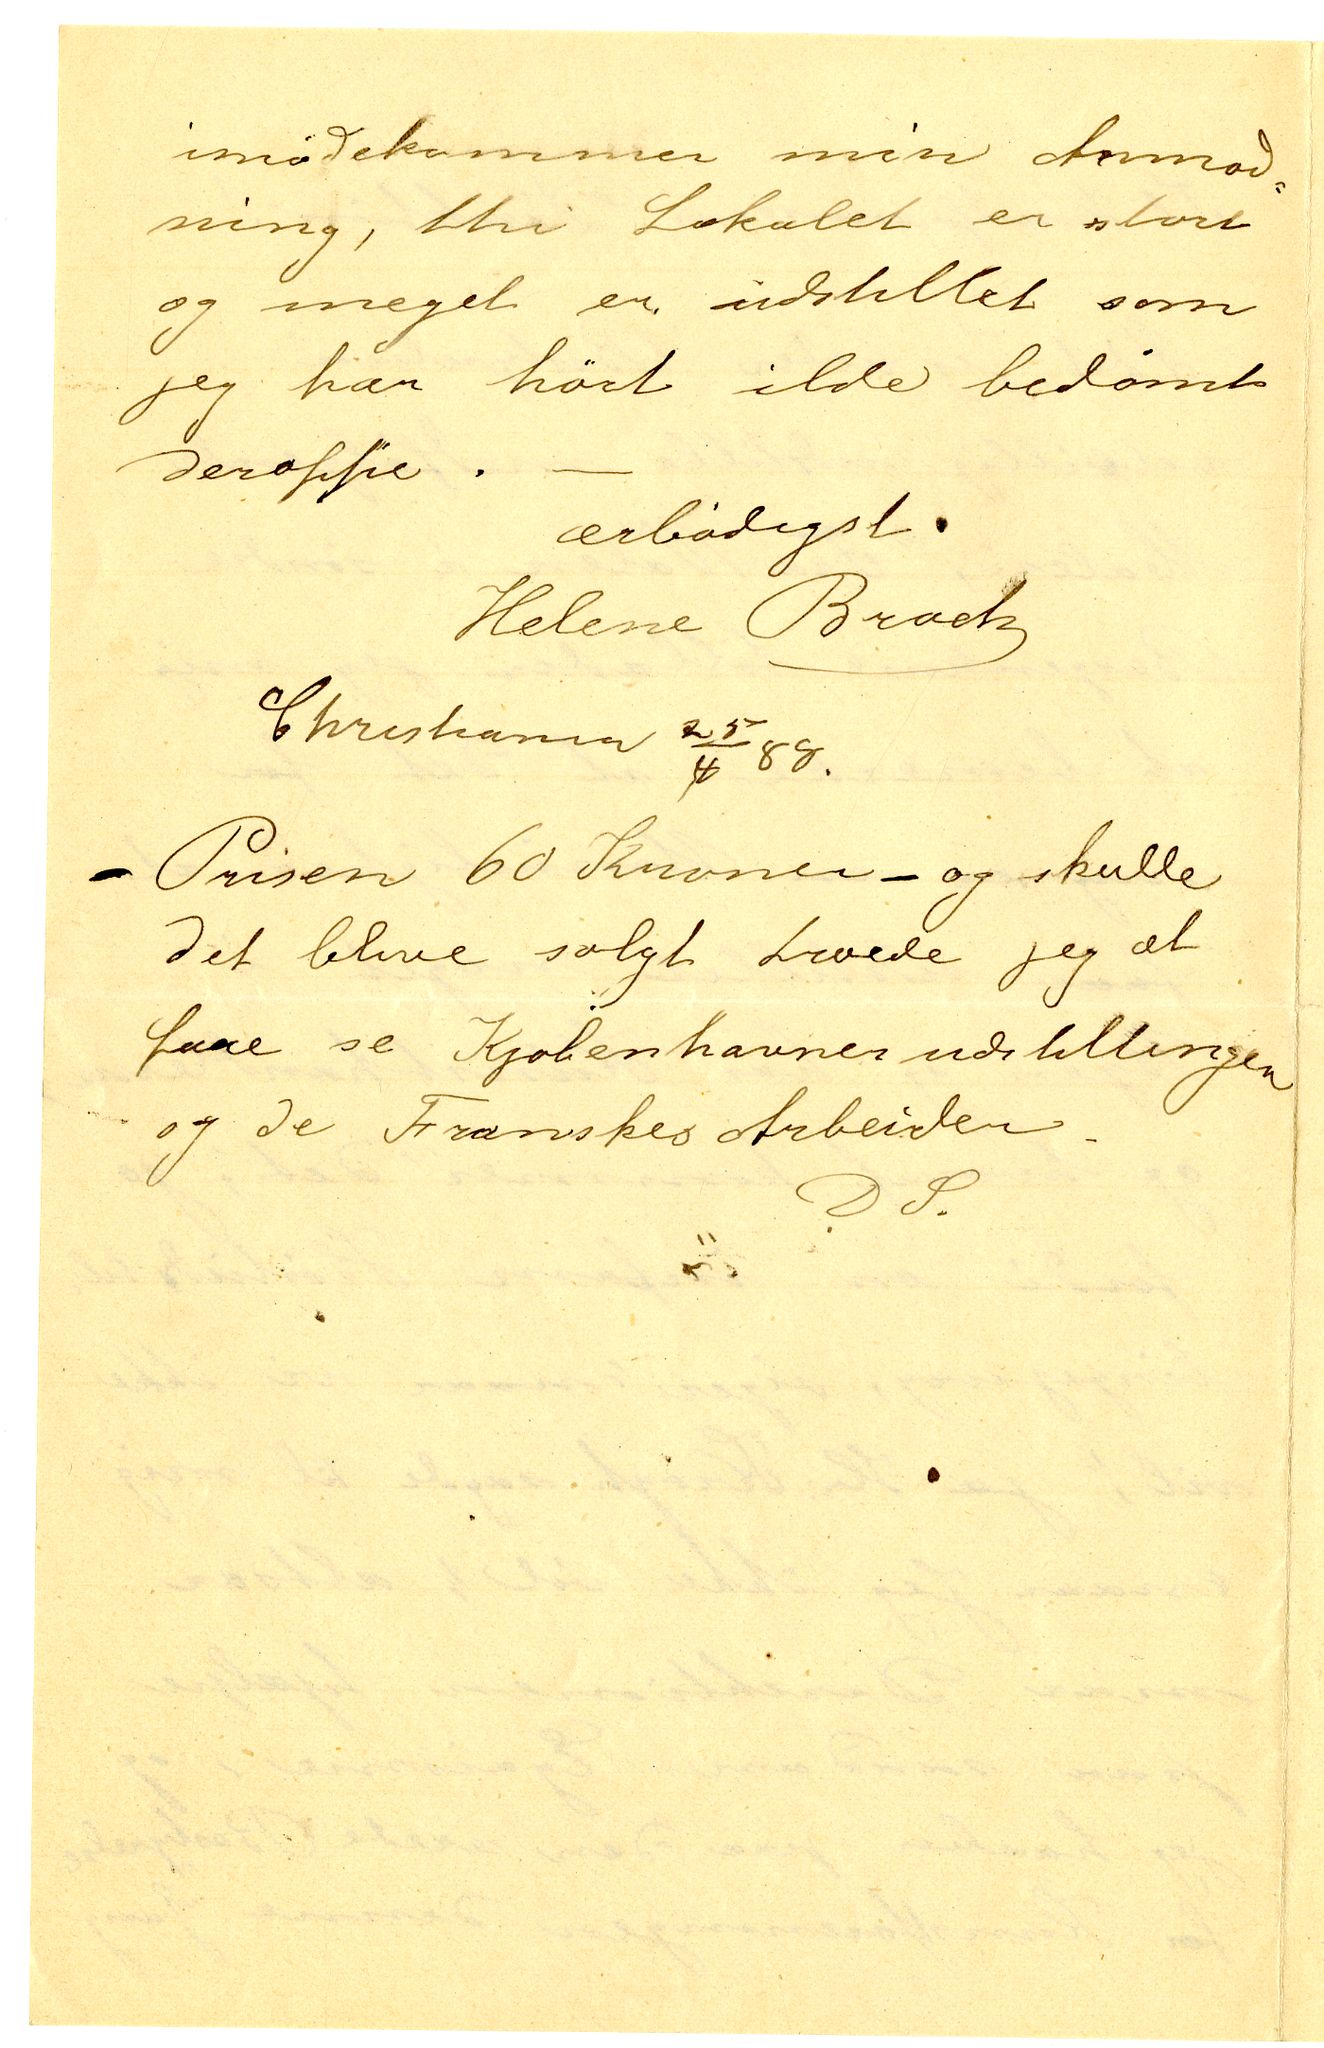 imödekommer min Anmod-
ning, thi Lokalet er stort
og meget er udstillet som
jeg har hört ilde bedömt
deroppe. —
ærbödigst.
Helene Broch
Christiania 25/4 88.
- Prisen 60 Kroner - og skulle
det blive solgt troede jeg at
faae se Kjøbenhavnerudstillingen
og de Franskes Arbeider.
D S.